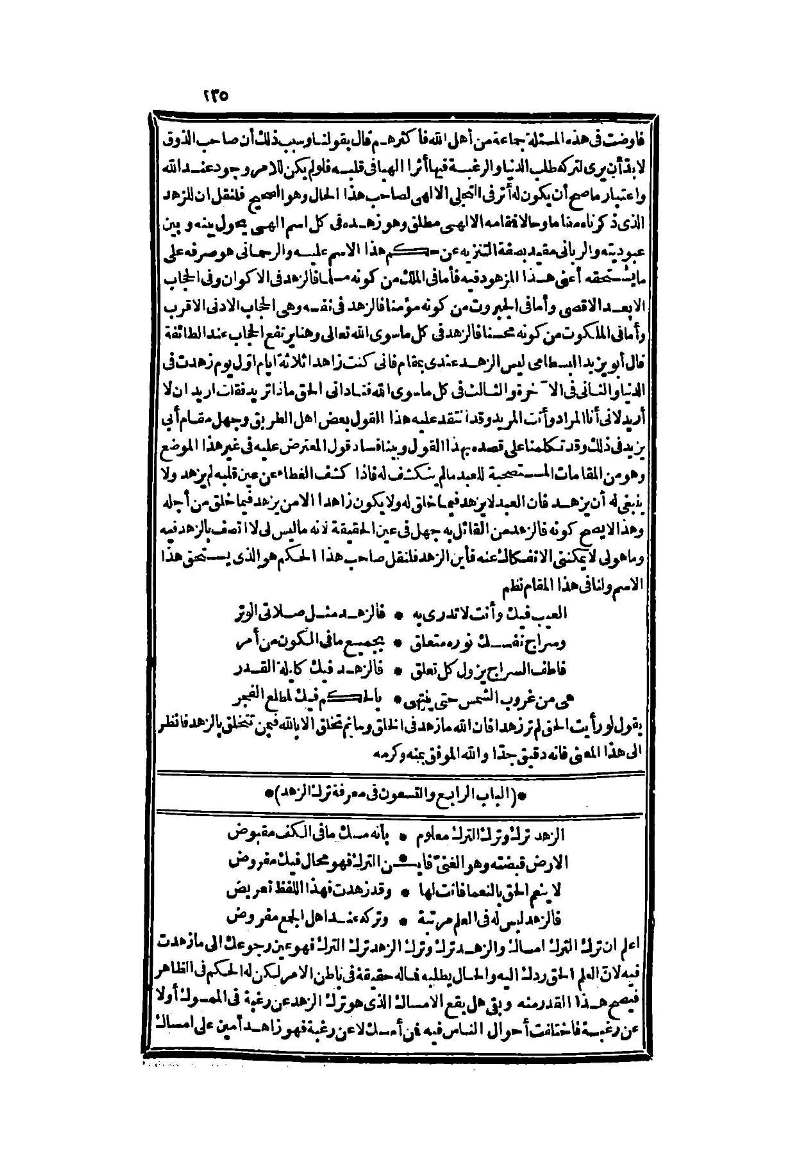 ٢٣٥
فاوضت فى هذه المسئلة جماعة من أهل الله فأكثرهم قال بقولنا وسبب ذلك أن صاحب الذوق
لا بد أن يرى لتركه طلب الدنيا والرغبة فيها أثرا الهيا فى قلبه فلو لم يكن للامر وجود عند الله
واعتبار ما صح أن يكون له أثر فى التجلى الالهى لصاحب هذا الحال وهو الصحيح فلنقل ان للزهد
الذى ذكرناه مقاما وحالا فمقامه الالهى مطلق وهو زهده فى كل اسم الهى يحول بينه وبين
عبوديته والربانى مقيد بصفة التنزيه عن حكم هذا الاسم عليه والرحمانى هو صرفه على
ما يستحقه أعنى هذا المزهود فيه فأما فى الملك من كونه مسلما فالزهد فى الاكوان وفى الحجاب
الابعد الاقصى وأما فى الجبروت من كونه مؤمنا فالزهد فى نفسه وهى الحجاب الادنى الاقرب
وأما فى الملكوت من كونه محسنا فالزهد فى كل ما سوى الله تعالى وهنا يرتفع الحجاب عند الطائفة
قال أبو يزيد البسطامى ليس الزهد عندى بمقام فانى كنت زاهدا ثلاثة ايام اول يوم زهدت فى
الدنيا والثانى فى الآخرة والثالث فى كل ما سوى الله فنادانى الحق ماذا تريد فقلت اريد ان لا
أريد لانى أنا المراد وأنت المريد وقد انتقد عليه هذا القول بعض اهل الطريق وجهل مقام أبى
يزيد فى ذلك وقد تكلمنا على قصده بهذا القول وبينا فساد قول المعترض عليه فى غير هذا الموضع
وهو من المقامات المستصحبة للعبد ما لم ينكشف له فاذا كشف الغطاء عن عين قلبه لم يزهد ولا
ينبغى له أن يزهد فان العبد لا يزهد فيما خلق له ولا يكون زاهدا الا من يزهد فيما خلق من أجله
وهذا لا يصح كونه فالزهد من القائل به جهل فى عين الحقيقة لانه ما ليس لى لا اتصف بالزهد فيه
وما هو لى لا يمكننى الانفكاك عنه فأين الزهد فلنقل صاحب هذا الحكم هو الذى يستحق هذا
الاسم ولنا فى هذا المقام نظم
الغيب فيك وأنت لا تدرى به * فالزهد مثل صلاتى الوتر
وسراج نفسك نوره متعلق * بجميع ما فى الكون من أمر
فاطف السراج يزول كل تعلق * فالزهد فيك كليلة القدر
هى من غروب الشمس حتى ينتهى * بالحكم فيك لمطلع الفجر
يقول لو رأيت الحق لم تر زهدا فان الله ما زهد فى الخلق وما ثم تخلق الا بالله فبمن تتخلق بالزهد فانظر
الى هذا المعنى فانه دقيق جدا والله الموفق بمنه وكرمه
*(الباب الرابع والتسعون فى معرفة ترك الزهد)*
الزهد ترك وترك الترك معلوم * بأنه مسك ما فى الكف مقبوض
الارض قبضته وهو الغنى فأين الترك فهو محال فيك مفروض
لا ينعم الحق بالنعما فانت لها * وقد زهدت فهذا اللفظ تعريض
فالزهد ليس له فى العلم مرتبة * وتركه عند اهل الجمع مفروض
اعلم ان ترك الترك امساك والزهد ترك وترك الزهد ترك الترك فهو عين رجوعك الى ما زهدت
فيه لان العلم الحق ردك اليه والحال يطلبه فماله حقيقة فى باطن الامر لكن له الحكم فى الظاهر
فيصح هذا القدر منه وبقى هل يقع الامساك الذى هو ترك الزهد عن رغبة فى الممسوك أو لا
عن رغبة فاختلفت أحوال الناس فيه فمن أمسك لا عن رغبة فهو زاهد أمين على امساك